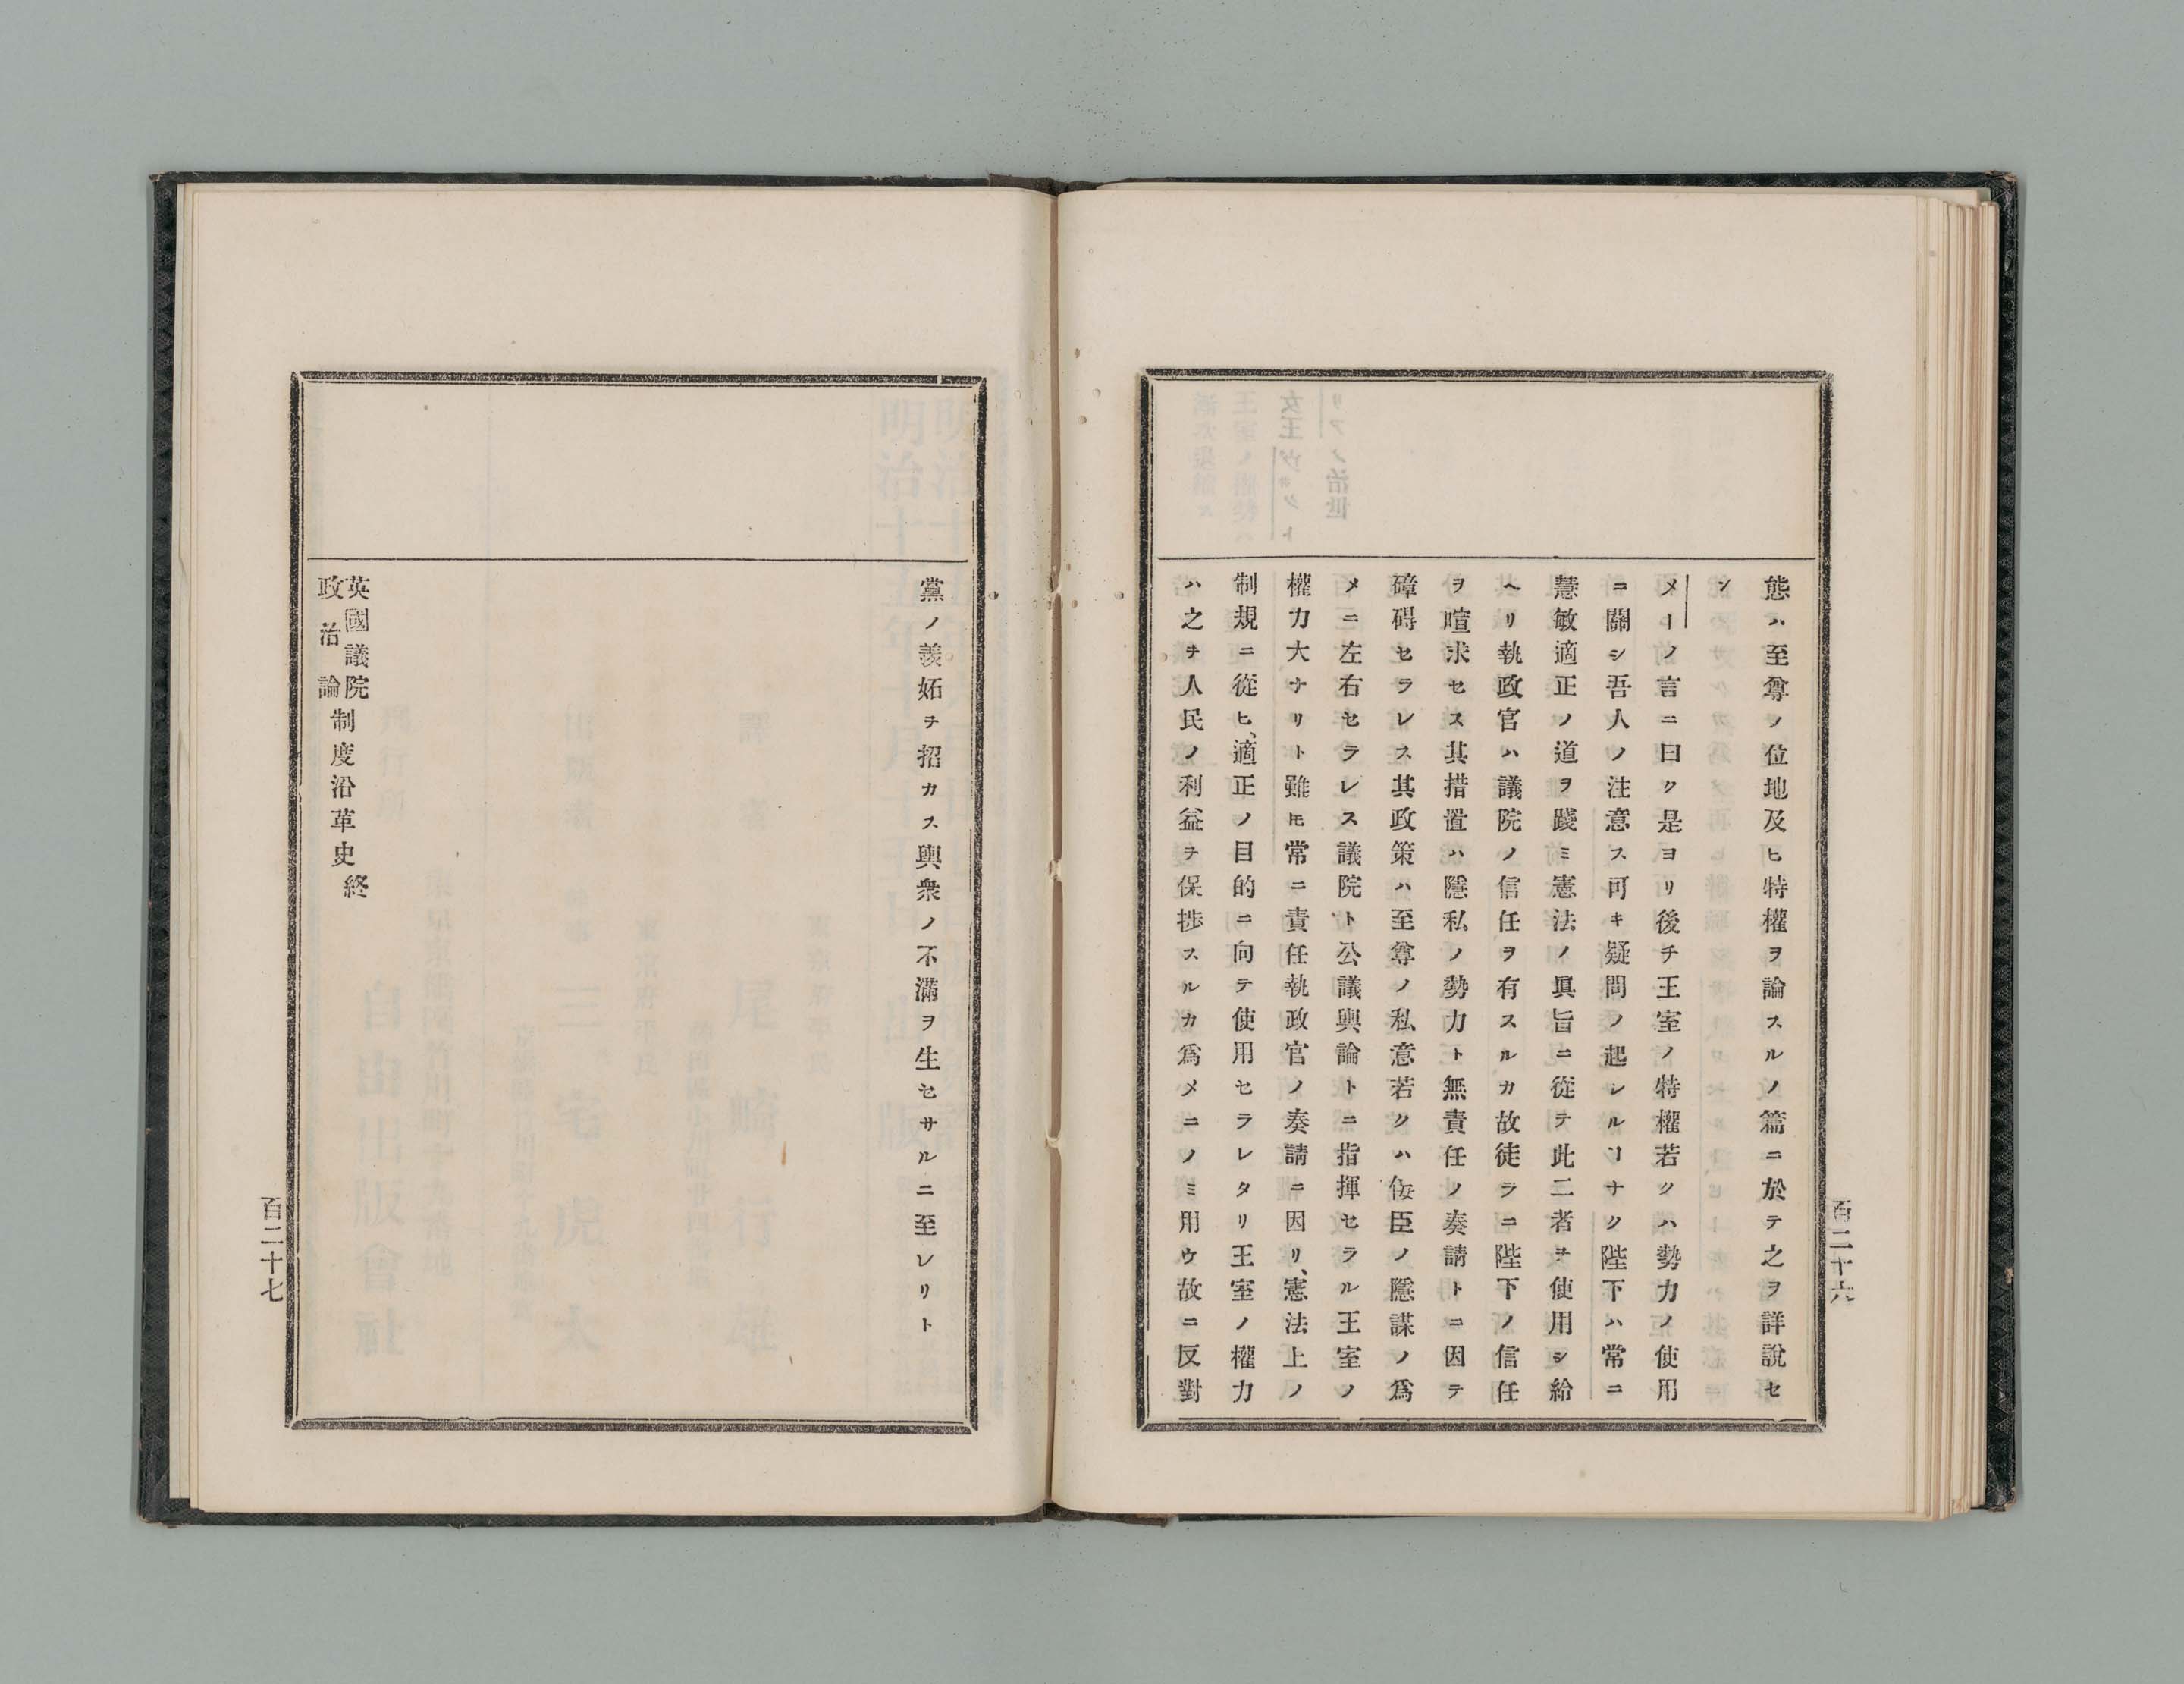 態ハ至尊ノ位地及ヒ特權ヲ論スルノ篇ニ於テ之ヲ詳說セ
ン
メーノ言ニ曰ク是ヨリ後チ王室ノ特權若クハ勢力ノ使用
ニ關シ吾人ノ注意ス可キ疑問ノ起レルヿナク陛下ハ常ニ
慧敏適正ノ道ヲ踐ミ憲法ノ眞旨ニ從テ此二者ヲ使用シ給
ヘリ執政官ハ議院ノ信任ヲ有スルカ故徒ラニ陛下ノ信任
ヲ喧求セス其措置ハ隱私ノ勢力ト無責任ノ奏請トニ因テ
障碍セラレス其政策ハ至尊ノ私意若クハ侫臣ノ隱謀ノ爲
メニ左右セラレス議院ト公議輿論トニ指揮セラル王室ノ
權力大ナリト雖𪜈常ニ責任執政官ノ奏請ニ因リ、憲法上ノ
制規ニ從ヒ、適正ノ目的ニ向テ使用セラレタリ王室ノ權力
ハ之ヲ人民ノ利益ヲ保捗スルカ爲メニノミ用ウ故ニ反對
百二十六
黨ノ羨妬ヲ招カス輿衆ノ不滿ヲ生セサルニ至レリト
英國議院
政治論
制度沿革史終
百二十七